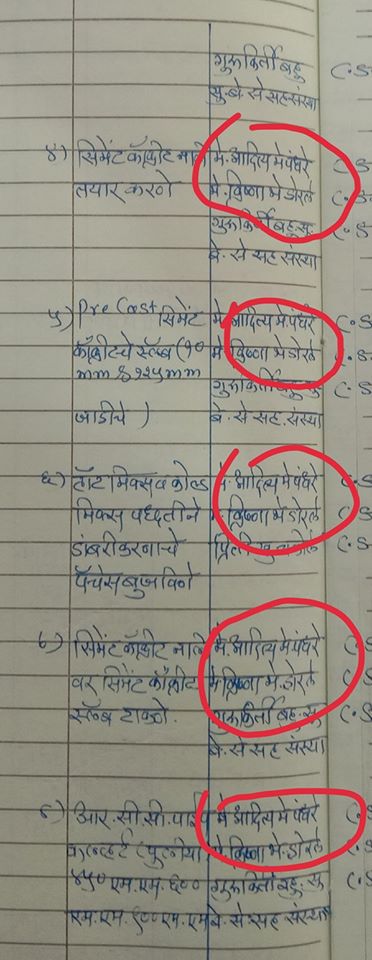 गुरुकिर्ती बहु
सु. बे. से सह. संस्था
C.S
४) सिमेंट काँक्रीट नाले मे. आदित्य मे पंधरे
तयार करणे मे. क्रिष्णा मे. डोरले
गुरुकिर्ती बहु. सु.
बे. से सह संस्था
५) Pre Cast सिमेंट मे आदित्य मे पंधरे
काँक्रीटचे स्लॅब (१० मे क्रिष्णा मे. डोरले
mm & १२५mm गुरुकिर्ती बहु. सु
जाडीचे ) बे. से सह. संस्था
६) हॉट मिक्स व कोल्ड मे. आदित्य मे पंधरे
मिक्स पध्दतीने मे. क्रिष्णा मे. डोरले
डांबरीकरनाचे
पॅचेस बुजविणे
७) सिमेंट काँक्रीट नाले मे आदित्य मे पंधरे
वर सिमेंट काँक्रीट मे क्रिष्णा मे. डोरले
स्लॅब टाकणे. गुरुकिर्ती बहु. सु
बे. से सह संस्था
८) आर. सी. सी. पाईप मे आदित्य मे पंधरे
कल्व्हर्ट (पुलीया) मे क्रिष्णा मे. डोरले
४५० एम. एम. ६०० गुरुकिर्ती बहु. सु
एम. एम. ९०० एम. एम बे. से. सह संस्था